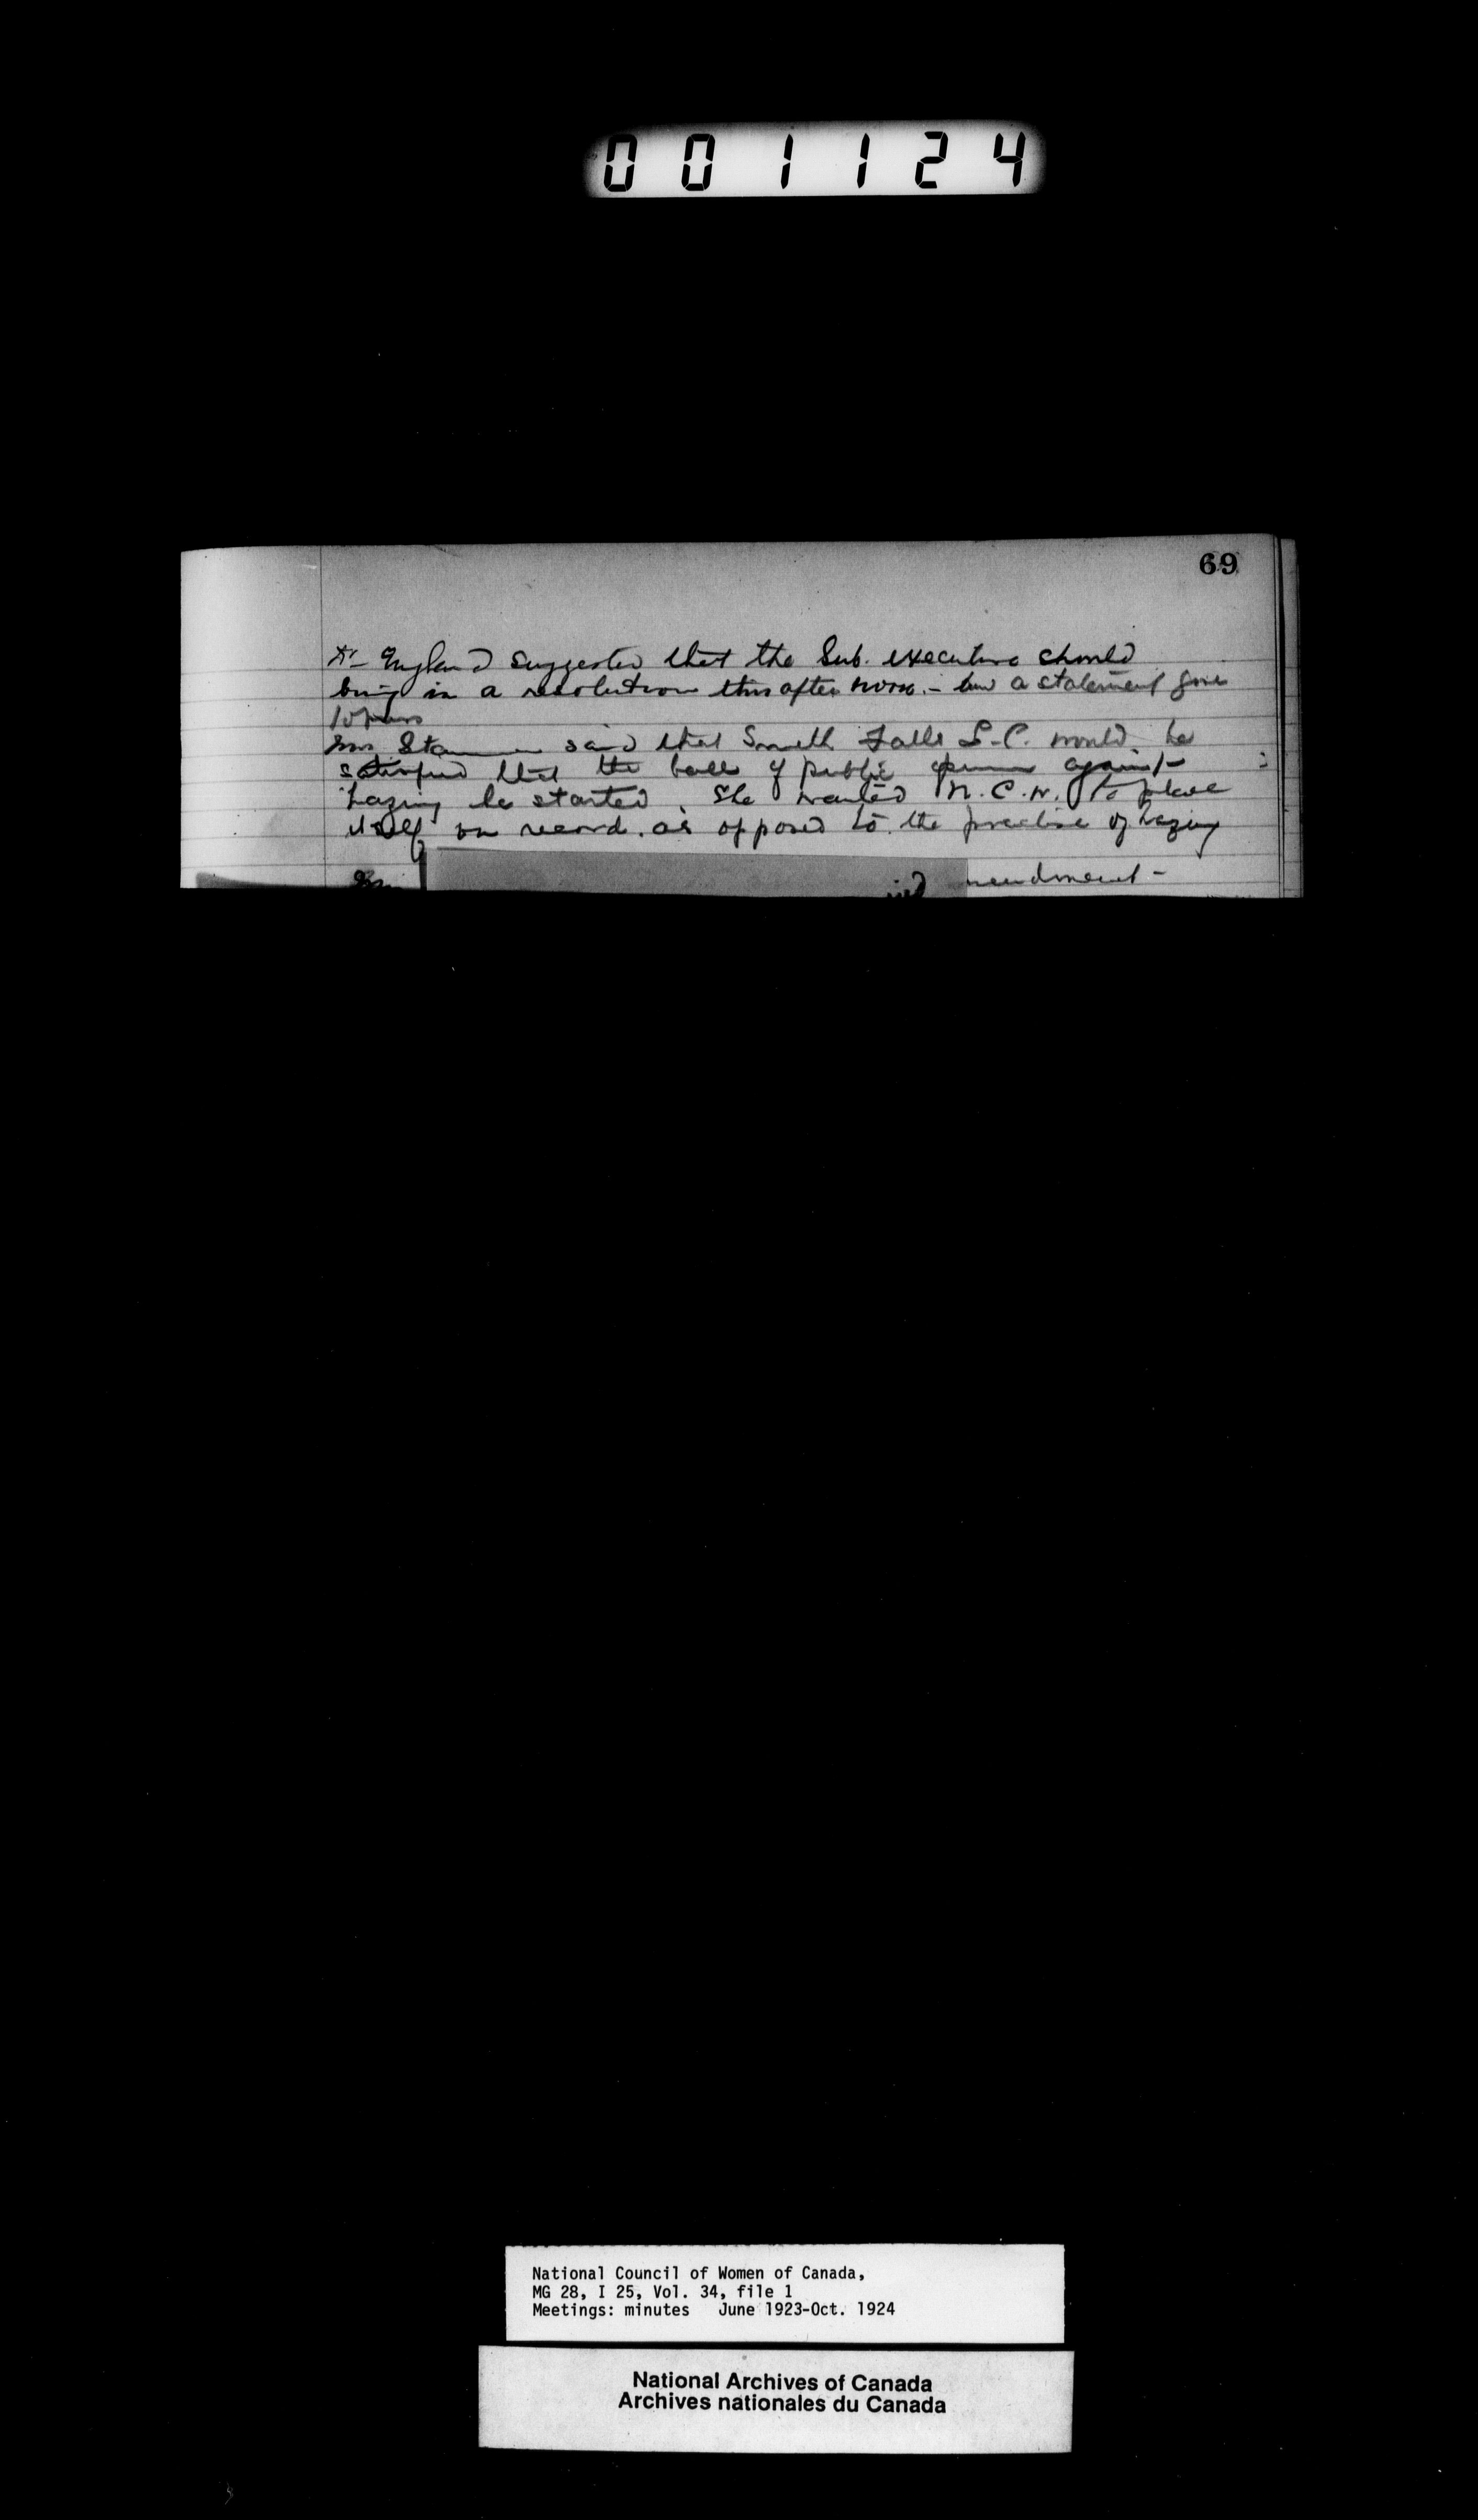 001124
69
Dr England suggested that the Sub. executive should
bring in a resolution this afternoon. - a statement
Mrs said that Smith Falls L.C. would be
satisfied that the ball of public opinion against
hazing be started. She wanted N.C.W. to place
itself on record as opposed to the practise of hazing
National Council of Women of Canada,
MG 28, I 25, Vol. 34, file 1
Meetings: minutes June 1923-Oct. 1924
National Archives of Canada
Archives nationales du Canada